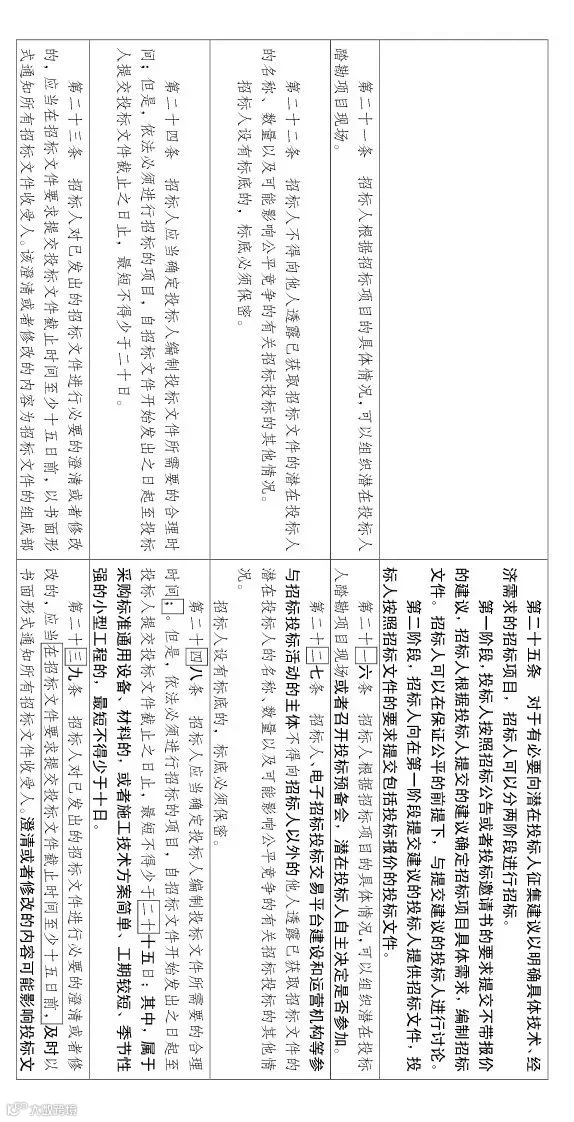 第二十五条 对于有必要向潜在投标人征集建议以明确具体技术、经
济需求的招标项目，招标人可以分两阶段进行招标。
第一阶段，投标人按照招标公告或者投标邀请书的要求提交不带报价
的建议，招标人根据投标人提交的建议确定招标项目具体需求，编制招标
文件。招标人可以在保证公平的前提下，与提交建议的投标人进行讨论。
第二阶段，招标人向在第一阶段提交建议的投标人提供招标文件，投
标人按照招标文件的要求提交包括投标报价的投标文件。
第二十一条 招标人根据招标项目的具体情况，可以组织潜在投标人
踏勘项目现场。
第二十一六条 招标人根据招标项目的具体情况，可以组织潜在投标
人踏勘项目现场或者召开投标预备会，潜在投标人自主决定是否参加。
第二十二条 招标人不得向他人透露已获取招标文件的潜在投标人
的名称、数量以及可能影响公平竞争的有关招标投标的其他情况。
招标人设有标底的，标底必须保密。
第二十二七条 招标人、电子招标投标交易平台建设和运营机构等参
与招标投标活动的主体不得向招标人以外的他人透露已获取招标文件的
潜在投标人的名称、数量以及可能影响公平竞争的有关招标投标的其他情
况。
招标人设有标底的，标底必须保密。
第二十四条 招标人应当确定投标人编制投标文件所需要的合理时
间；但是，依法必须进行招标的项目，自招标文件开始发出之日起至投标
人提交投标文件截止之日止，最短不得少于二十日。
第二十四八条 招标人应当确定投标人编制投标文件所需要的合理
时间；。但是，依法必须进行招标的项目，自招标文件开始发出之日起至
投标人提交投标文件截止之日止，最短不得少于二十十五日；其中，属于
采购标准通用设备、材料的，或者施工技术方案简单、工期较短、季节性
强的小型工程的，最短不得少于十日。
第二十三条 招标人对已发出的招标文件进行必要的澄清或者修改
的，应当在招标文件要求提交投标文件截止时间至少十五日前，以书面形
式通知所有招标文件收受人。该澄清或者修改的内容为招标文件的组成部
第二十三九条 招标人对已发出的招标文件进行必要的澄清或者修
改的，应当在招标文件要求提交投标文件截止时间至少十五日前，及时以
书面形式通知所有招标文件收受人。澄清或者修改的内容可能影响投标文
大数跨境